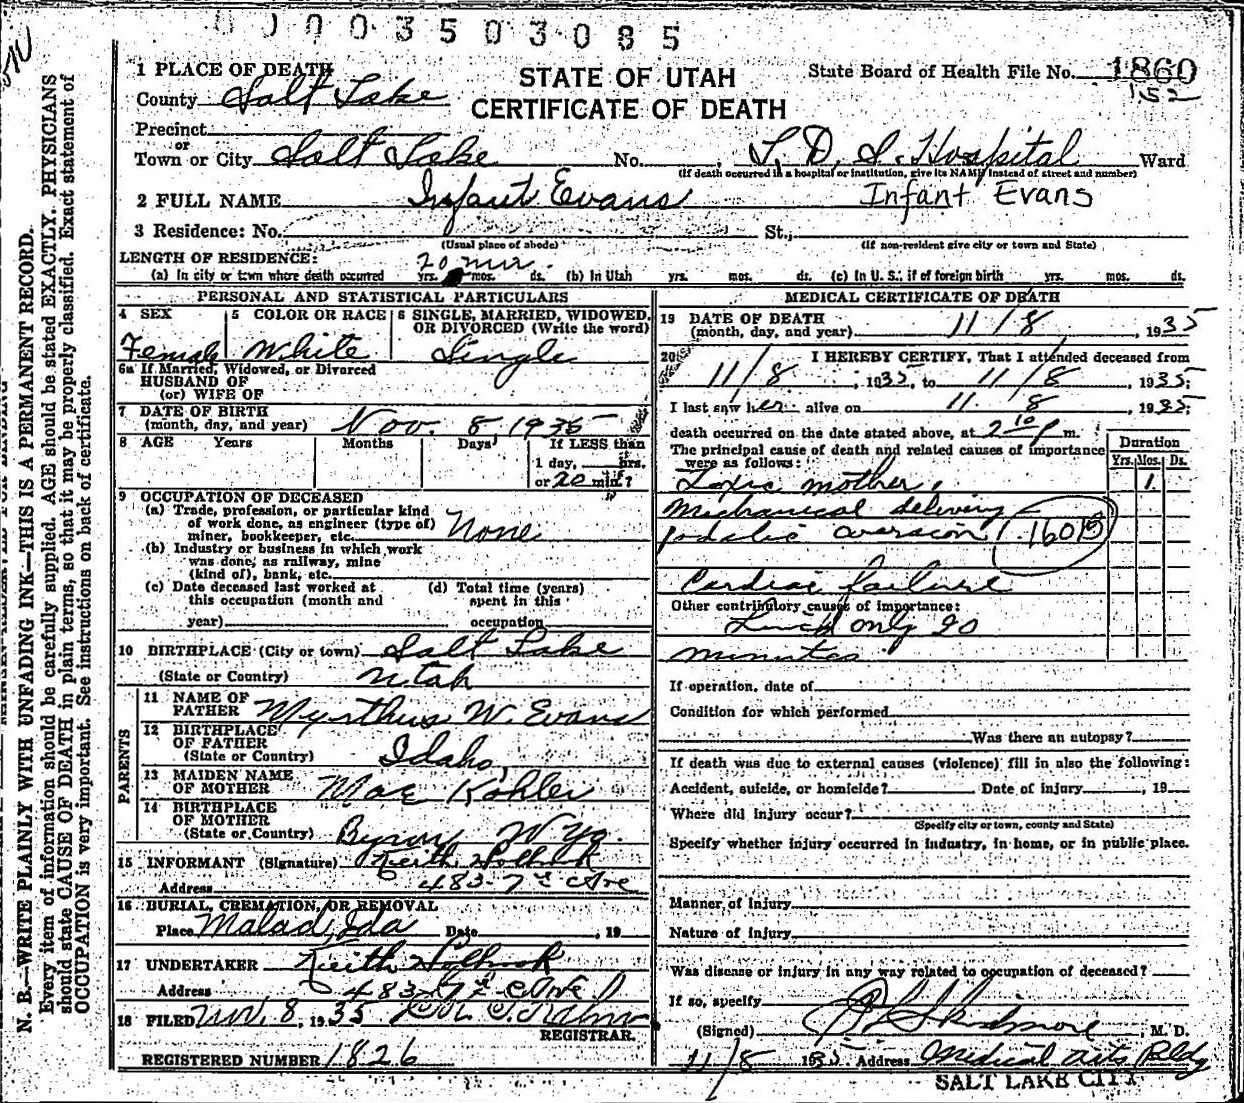 00003503085
1 PLACE OF DEATH
STATE OF UTAH
CERTIFICATE OF DEATH
State Board of Health File No. 1860
152
County Salt Lake
Precinct
or
Town or City Salt Lake No. , L. D. S. Hospital Ward
(If death occurred in a hospital or institution, give its NAME instead of street and number)
2 FULL NAME Infant Evans Infant Evans
3 Residence: No. St.,
(Usual place of abode) (If non-resident give city or town and State)
LENGTH OF RESIDENCE: 20 min.
(a) In city or town where death occurred yrs. mos. ds. (b) In Utah yrs. mos. ds. (c) In U. S., if of foreign birth yrs. mos. ds.
PERSONAL AND STATISTICAL PARTICULARS
4 SEX 5 COLOR OR RACE 6 SINGLE, MARRIED, WIDOWED, OR DIVORCED (Write the word)
Female White Single
6a If Married, Widowed, or Divorced
HUSBAND OF
(or) WIFE OF
7 DATE OF BIRTH
(month, day, and year) Nov. 8 1935
8 AGE Years Months Days If LESS than
1 day, hrs.
or 20 min.?
9 OCCUPATION OF DECEASED
(a) Trade, profession, or particular kind
of work done, as engineer (type of)
miner, bookkeeper, etc. None
(b) Industry or business in which work
was done, as railway, mine
(kind of), bank, etc.
(c) Date deceased last worked at (d) Total time (years)
this occupation (month and spent in this
year) occupation
10 BIRTHPLACE (City or town) Salt Lake
(State or Country) Utah
PARENTS
11 NAME OF
FATHER Myrthus W. Evans
12 BIRTHPLACE
OF FATHER
(State or Country) Idaho
13 MAIDEN NAME
OF MOTHER Mae Kohler
14 BIRTHPLACE
OF MOTHER
(State or Country) Byron Wyo.
15 INFORMANT (Signature) Keith Holbrook
Address 483-7th Ave
16 BURIAL, CREMATION, OR REMOVAL
Place Malad, Ida Date , 19
17 UNDERTAKER Keith Holbrook
Address 483-7th Ave
18 FILED Nov. 8, 1935
REGISTRAR.
REGISTERED NUMBER 1826
MEDICAL CERTIFICATE OF DEATH
19 DATE OF DEATH
(month, day, and year) 11/8, 1935
20 I HEREBY CERTIFY, That I attended deceased from
11/8, 1935, to 11/8, 1935;
I last saw her alive on 11. 8, 1935;
death occurred on the date stated above, at 2 10 p m.
The principal cause of death and related causes of importance
were as follows:
Duration
Yrs. Mos. Ds.
Toxic mother, 1
Mechanical delivery
podalic version 160B
Cardiac failure
Other contributory causes of importance:
Lived only 20
minutes
If operation, date of
Condition for which performed
Was there an autopsy?
If death was due to external causes (violence) fill in also the following:
Accident, suicide, or homicide? Date of injury , 19
Where did injury occur?
(Specify city or town, county and State)
Specify whether injury occurred in industry, in home, or in public place.
Manner of Injury
Nature of Injury
Was disease or injury in any way related to occupation of deceased?
If so, specify
(Signed) Skidmore, M. D.
11/8 1935 Address Medical Arts Bldg
SALT LAKE CITY
N. B.—WRITE PLAINLY WITH UNFADING INK—THIS IS A PERMANENT RECORD.
Every item of information should be carefully supplied. AGE should be stated EXACTLY. PHYSICIANS
should state CAUSE OF DEATH in plain terms, so that it may be properly classified. Exact statement of
OCCUPATION is very important. See instructions on back of certificate.